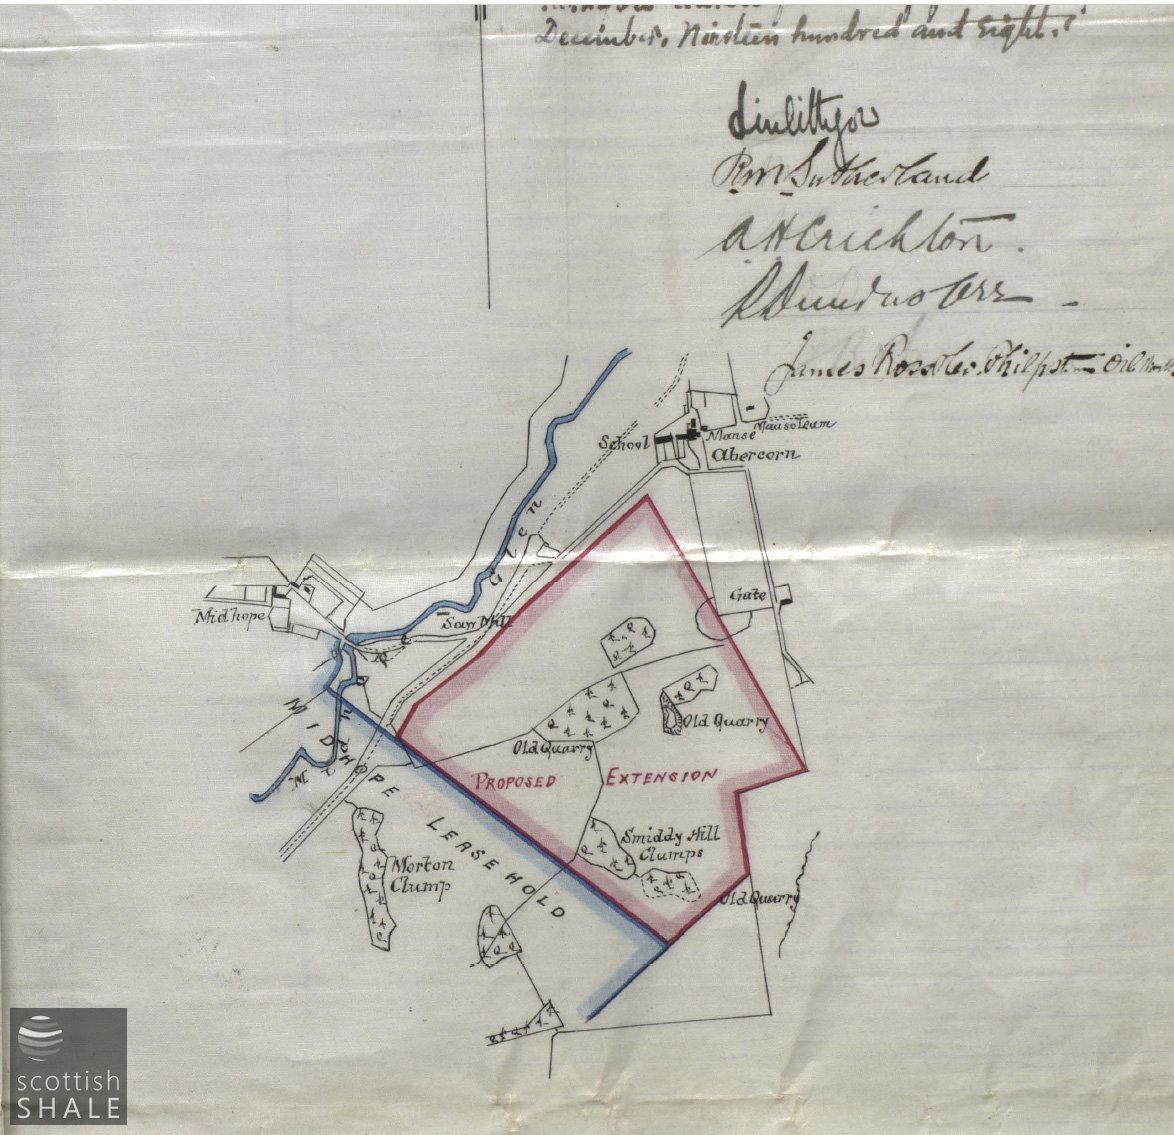 December, Nineteen hundred and eight.
Linlithgow
R M Sutherland
A H Crichton.
R Dundas Orr
James Ross
Philpstoun Oil Works
School
Manse
Mausoleum
Abercorn
Midhope Glen
Gate
Midhope
Saw Mill
Old Quarry
Old Quarry
PROPOSED EXTENSION
MIDHOPE LEASEHOLD
Smiddy Hill
Clumps
Morton
Clump
Old Quarry
scottish
SHALE